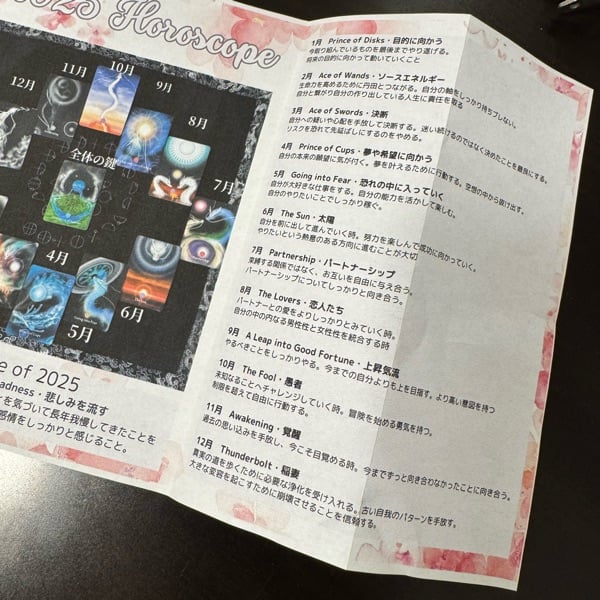 2025 Horoscope
12月
11月
10月
9月
8月
7月
全体の鍵
4月
5月
6月
e of 2025
adness・悲しみを流す
を気づいて長年我慢してきたことを
感情をしっかりと感じること。
1月 Prince of Disks・目的に向かう
今取り組んでいるものを最後までやり遂げる。
将来の目的に向かって動いていくこと
2月 Ace of Wands・ソースエネルギー
生命力を高めるために丹田とつながる。自分の軸をしっかり持ちブレない。
自分と繋がり自分の作り出している人生に責任を取る
3月 Ace of Swords・決断
自分への疑いや心配を手放して決断する。迷い続けるのではなく決めたことを最良にする。
リスクを恐れて先延ばしにするのをやめる。
4月 Prince of Cups・夢や希望に向かう
自分の本来の願望に気が付く。夢を叶えるために行動する。空想の中から抜け出す。
5月 Going into Fear・恐れの中に入っていく
自分が大好きな仕事をする。自分の能力を活かして楽しむ。
自分のやりたいことでしっかり稼ぐ。
6月 The Sun・太陽
自分を前に出して進んでいく時。努力を楽しんで成功に向かっていく。
やりたいという熱量のある方向に進むことが大切
7月 Partnership・パートナーシップ
束縛する関係ではなく、お互いを自由に与え合う。
パートナーシップについてしっかり向き合う。
8月 The Lovers・恋人たち
パートナーとの愛をよりしっかりとみていく時。
自分の中の内なる男性性と女性性を統合する時
9月 A Leap into Good Fortune・上昇気流
やるべきことをしっかりやる。今までの自分よりも上を目指す。より高い意図を持つ
10月 The Fool・愚者
未知なることへチャレンジしていく時。冒険を始める勇気を持つ。
制限を超えて自由に行動する。
11月 Awakening・覚醒
過去の思い込みを手放し、今こそ目覚める時。今までずっと向き合わなかったことに向き合う。
12月 Thunderbolt・稲妻
真実の道を歩くために必要な浄化を受け入れる。古い自我のパターンを手放す。
大きな変容を起こすために崩壊させることを信頼する。